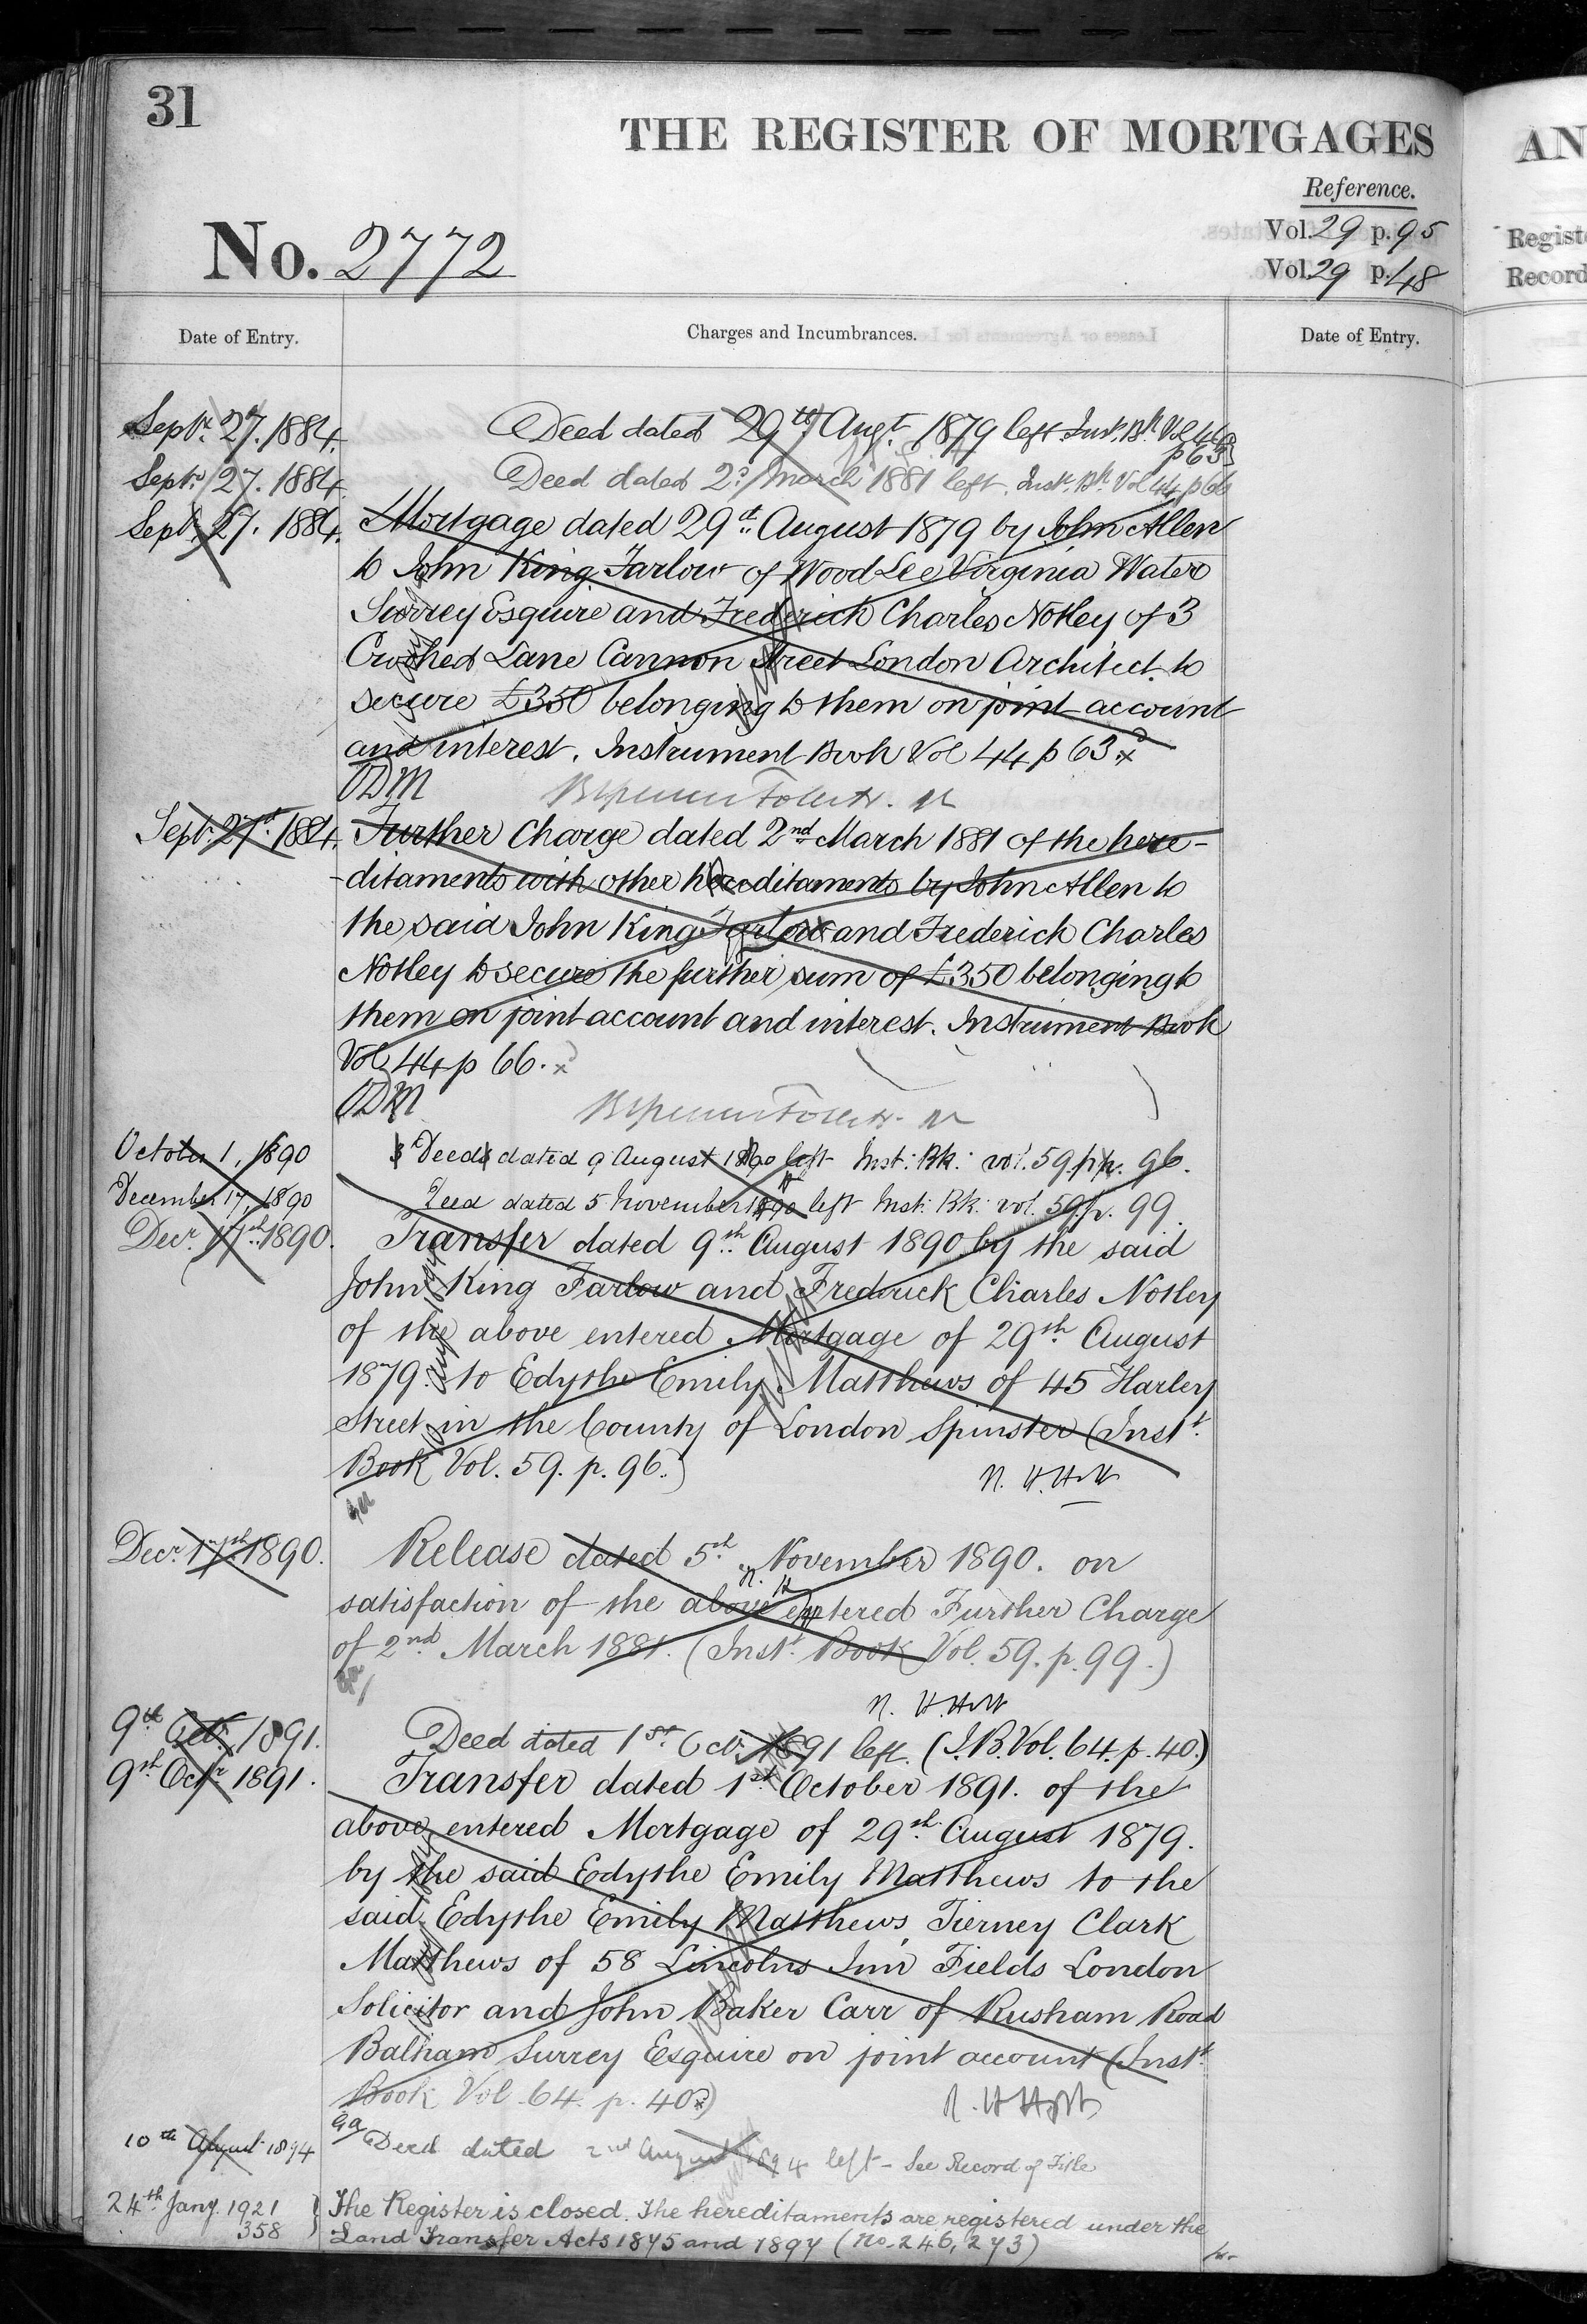 31
THE REGISTER OF MORTGAGES
AN
Reference.
No. 2772
Vol. 29 p. 95
Vol. 29 p. 48
Regist
Record
Date of Entry.
Charges and Incumbrances.
Date of Entry.
Septr. 27. 1884. Deed dated 29th Augt. 1879 left Inst. Bk Vol 44
p 63
Septr. 27. 1884. Deed dated 2d March 1881 left. Inst. Bk. Vol 44 p 66
Sept. 27. 1884. Mortgage dated 29th August 1879 by John Allen
to John King Farlow of Wood Lee Virginia Water
Surrey Esquire and Frederick Charles Notley of 3
Crooked Lane Cannon Street London Architect to
secure £350 belonging to them on joint account
and interest. Instrument Book Vol 44 p 63
ODM
Sept. 27th. 1884. Further Charge dated 2nd March 1881 of the here-
-ditaments with other hereditaments by John Allen to
the said John King Farlow and Frederick Charles
Notley to secure the further sum of £350 belonging to
them on joint account and interest. Instrument Book
Vol 44 p 66.
ODM
October 1, 1890 Deed dated 9 August 1890 left Inst: Bk: vol. 59. p. 96.
December 17, 1890 Deed dated 5 November 1890 left Inst: Bk: vol. 59. p. 99.
Decr. 17th 1890. Transfer dated 9th August 1890 by the said
John King Farlow and Frederick Charles Notley
of the above entered Mortgage of 29th August
1879. to Edythe Emily Matthews of 45 Harley
Street in the County of London Spinster (Instt.
Book Vol. 59. p. 96.)
Decr. 17th 1890. Release dated 5th November 1890. on
satisfaction of the above entered Further Charge
of 2nd March 1881. (Instt. Book Vol. 59. p. 99.)
9th Octr. 1891. Deed dated 1st Octr. 1891 left. (I.B. Vol. 64. p. 40.)
9th Octr 1891. Transfer dated 1st October 1891. of the
above entered Mortgage of 29th August 1879.
by the said Edythe Emily Matthews to the
said Edythe Emily Matthews, Tierney Clark
Matthews of 58 Lincolns Inn Fields London
Solicitor and John Baker Carr of Rusham Road
Balham Surrey Esquire on joint account (Instt.
Book Vol. 64. p. 40)
10th August 1894 Deed dated 2nd August 1894 left – See Record of Title
24th Jany. 1921 The Register is closed. The hereditaments are registered under the
358 Land Transfer Acts 1875 and 1897 (No. 246,273)